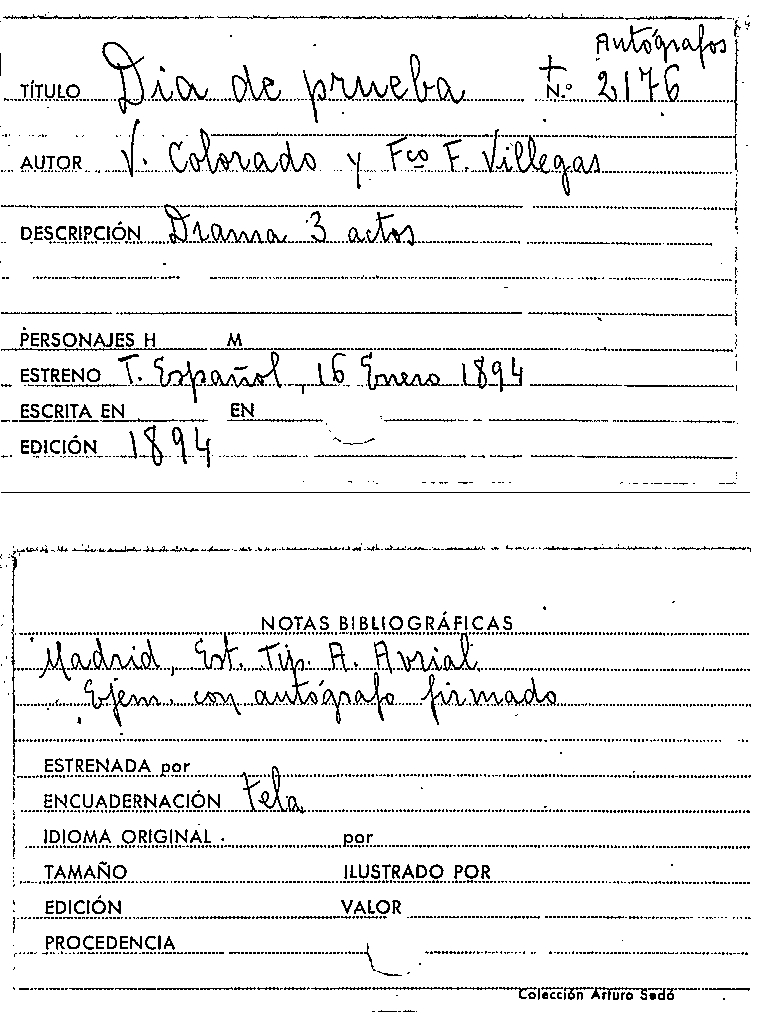 Autógrafos
TÍTULO Dia de prueba N.º 2176
AUTOR V. Colorado y Fco F. Villegas
DESCRIPCIÓN Drama 3 actos
PERSONAJES H M
ESTRENO T. Español, 16 Enero 1894
ESCRITA EN EN
EDICIÓN 1894
NOTAS BIBLIOGRÁFICAS
Madrid, Est. Tip. A. Avrial
Ejem. con autógrafo firmado
ESTRENADA por
ENCUADERNACIÓN tela
IDIOMA ORIGINAL por
TAMAÑO ILUSTRADO POR
EDICIÓN VALOR
PROCEDENCIA
Colección Arturo Sedó